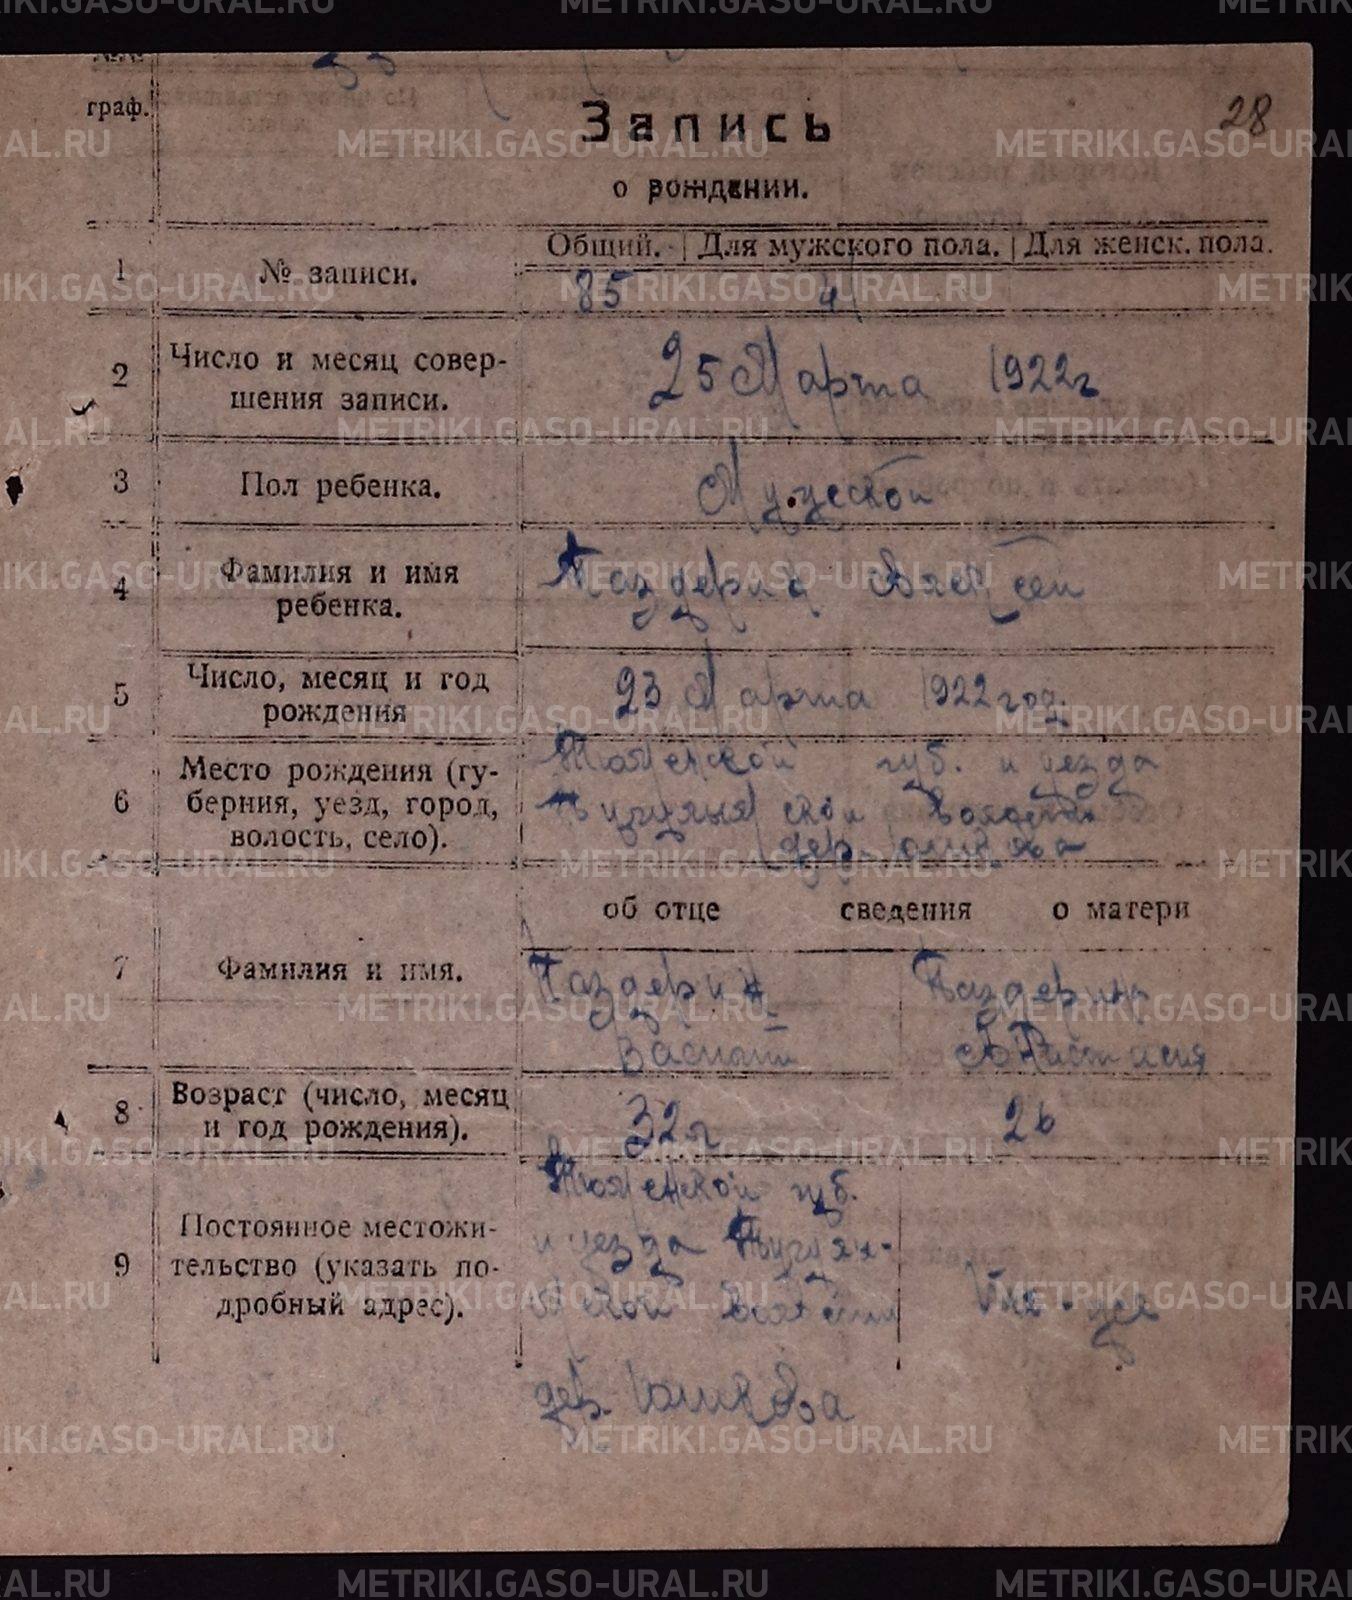 граф.
28
Запись
о рождении.
Общий. Для мужского пола. Для женск. пола.
1 № записи. 85 4
2 Число и месяц совер-
шения записи.
25 Марта 1922 г
3 Пол ребенка. Мужской
4 Фамилия и имя
ребенка.
Паздерин Алексей
5 Число, месяц и год
рождения
23 Марта 1922 год.
6 Место рождения (гу-
берния, уезд, город,
волость, село).
Тюменской губ. и уезда
волости
дер.
об отце сведения о матери
7 Фамилия и имя.
Паздерин Паздерина
Василий Анастасия
8 Возраст (число, месяц
и год рождения).
32 г 26
9 Постоянное местожи-
тельство (указать по-
дробный адрес).
Тюменской губ.
и уезда
ской волости
дер.
METRIKI.GASO-URAL.RU